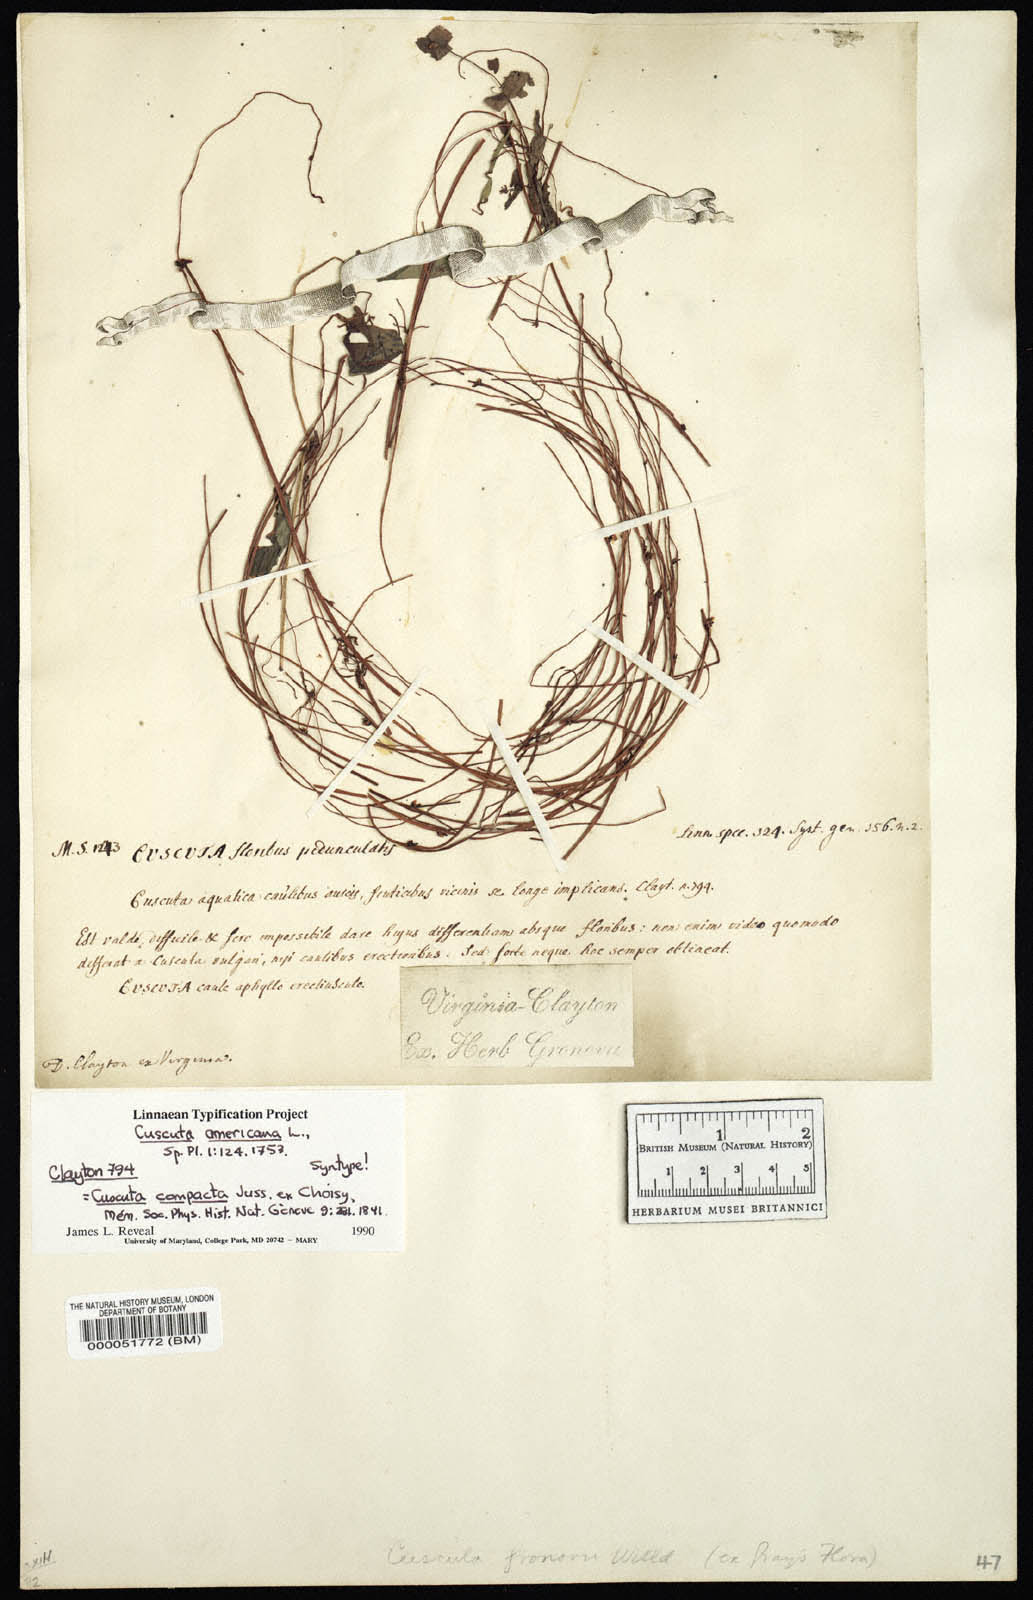 Linn. spec. 124. Syst. gen. 156. n. 2.
M.S. 1243 CUSCUTA floribus pedunculatis
Cuscuta aquatica caulibus aureis, fruticibus vicinis se longe implicans. Clayt. n. 794.
Est valde difficile & fere impossibile dare hujus differentiam absque floribus: non enim video quomodo
differat a Cuscuta vulgari, nisi caulibus erectioribus. Sed forte neque hoc semper obtineat.
CUSCUTA caule aphyllo erectiusculo.
Virginia - Clayton
Ex. Herb Gronovii
D. Clayton ex Virginia.
Linnaean Typification Project
Cuscuta americana L.,
Sp. Pl. 1:124. 1753.
Clayton 794 Syntype!
= Cuscuta compacta Juss. ex Choisy,
Mém. Soc. Phys. Hist. Nat. Genève 9: 281. 1841.
James L. Reveal 1990
University of Maryland, College Park, MD 20742 – MARY
1 2
BRITISH MUSEUM (NATURAL HISTORY)
1 2 3 4 5
HERBARIUM MUSEI BRITANNICI
THE NATURAL HISTORY MUSEUM, LONDON
DEPARTMENT OF BOTANY
000051772 (BM)
Cuscuta gronovii Willd (ex Gray's Flora)
47